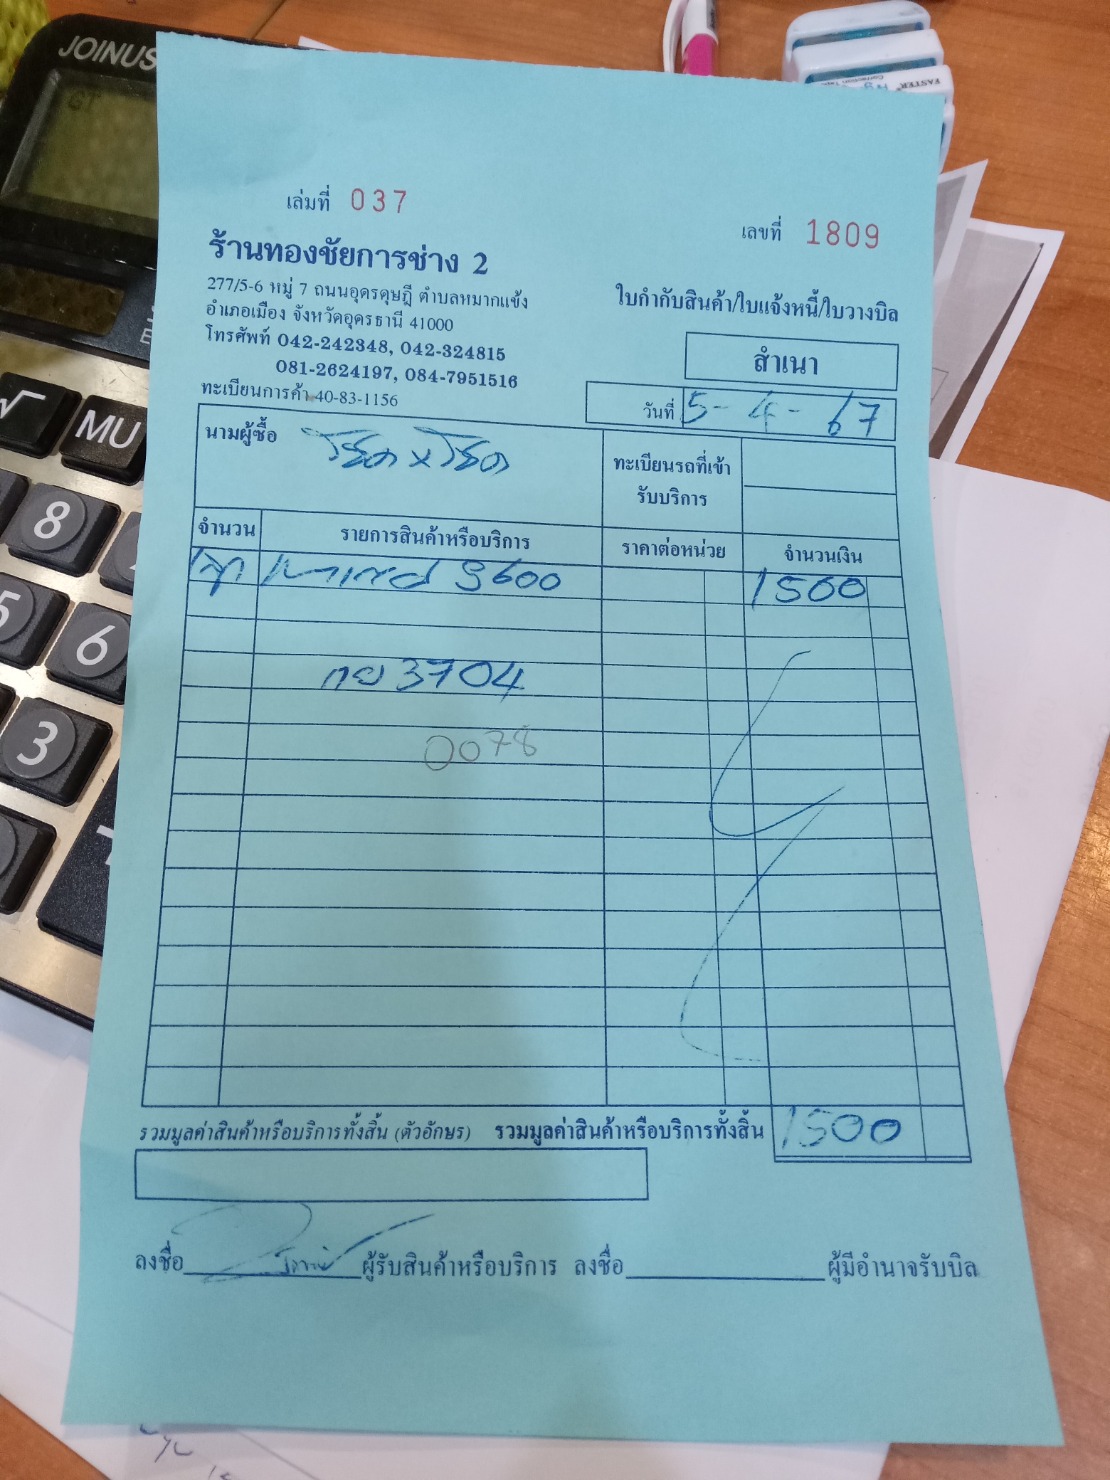 JOINUS
GT
FASTER
เล่มที่ 037
เลขที่ 1809
ร้านทองชัยการช่าง 2
277/5-6 หมู่ 7 ถนนอุดรดุษฎี ตำบลหมากแข้ง
อำเภอเมือง จังหวัดอุดรธานี 41000
โทรศัพท์ 042-242348, 042-324815
081-2624197, 084-7951516
ทะเบียนการค้า 40-83-1156
ใบกำกับสินค้า/ใบแจ้งหนี้/ใบวางบิล
สำเนา
วันที่ 5-4-67
นามผู้ซื้อ
ทะเบียนรถที่เข้า
รับบริการ
จำนวน รายการสินค้าหรือบริการ ราคาต่อหน่วย จำนวนเงิน
1500
3704
0078
รวมมูลค่าสินค้าหรือบริการทั้งสิ้น (ตัวอักษร) รวมมูลค่าสินค้าหรือบริการทั้งสิ้น 1500
ลงชื่อ ผู้รับสินค้าหรือบริการ ลงชื่อ ผู้มีอำนาจรับบิล
√
MU
8
5
6
3